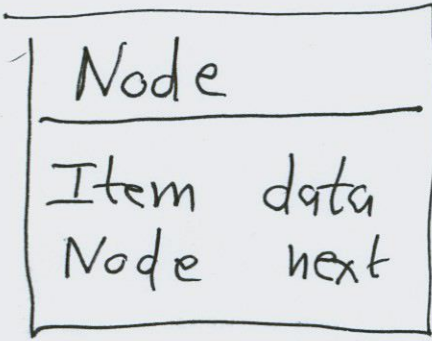 Node
Item data
Node next